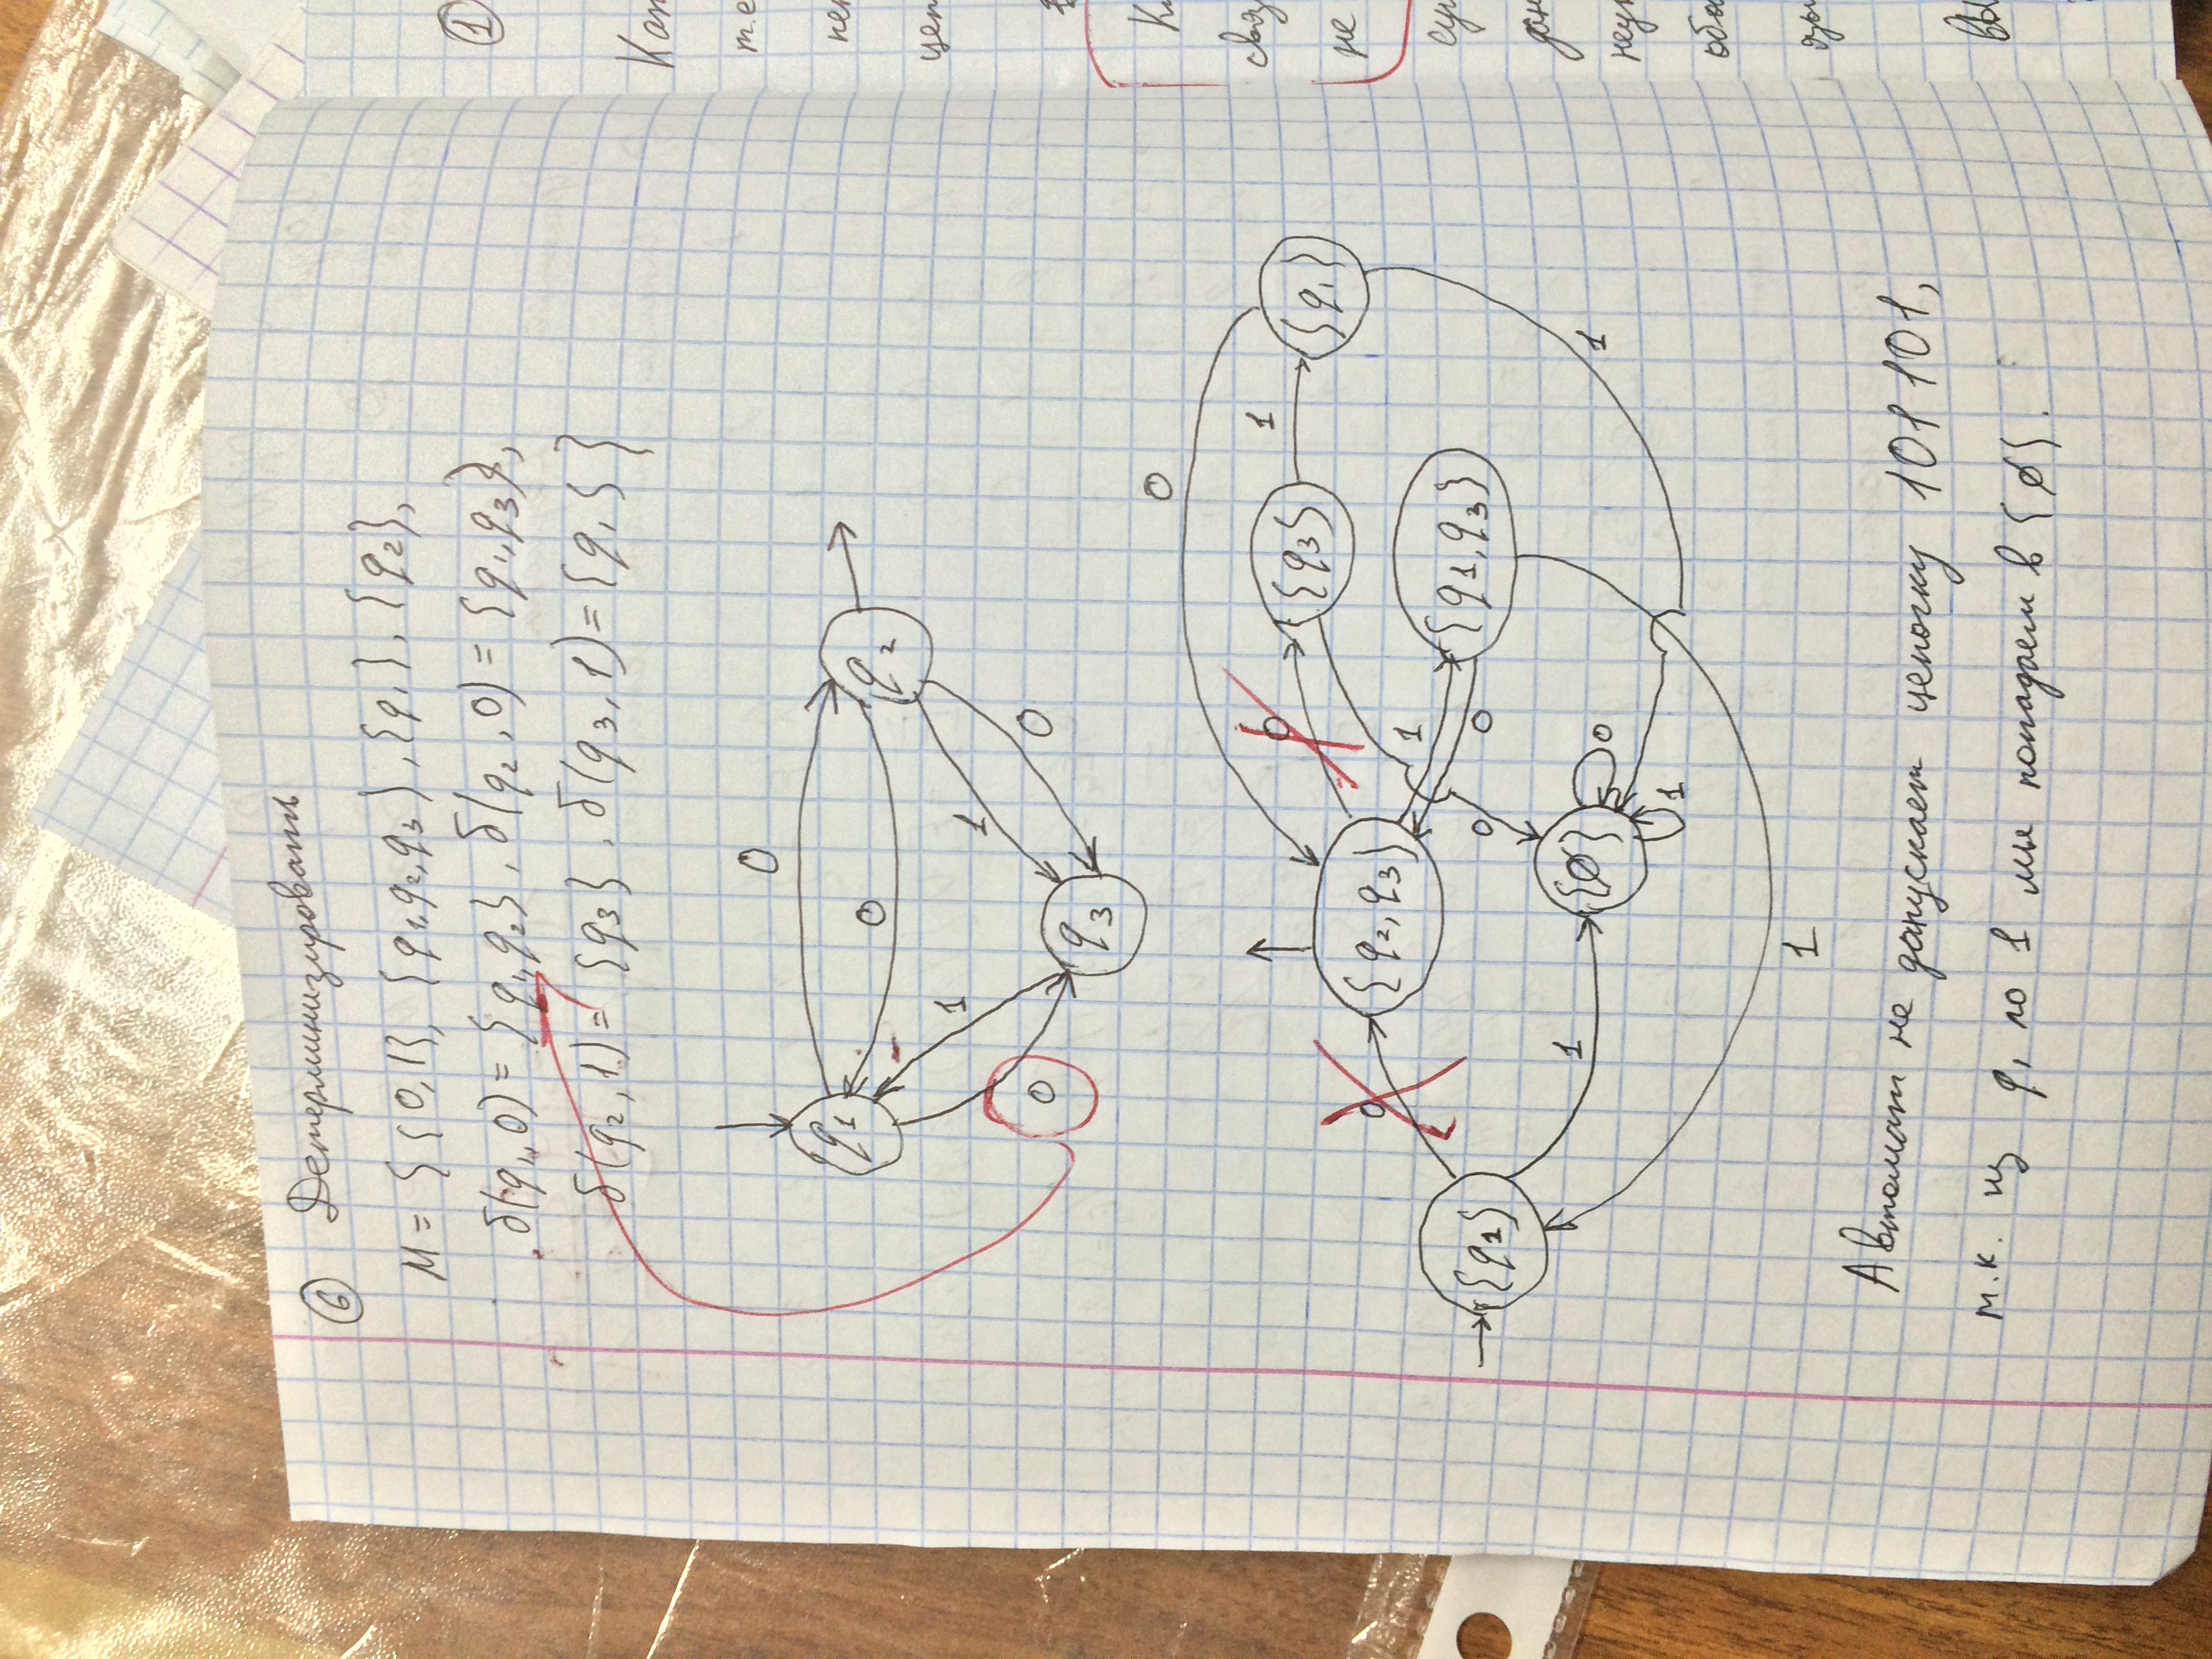 6 Детерминизировать
M = { {0,1}, {q1,q2,q3}, {q1}, {q2},
δ(q1,0) = {q1,q2}, δ(q2,0) = {q1,q3},
δ(q2,1) = {q3}, δ(q3,1) = {q1} }
0
q1
0
q2
1
1
0
0
q3
0
0
1
{q3}
{q1}
0
{q2,q3}
1
{q1,q3}
{q1}
0
0
1
{ø}
0
1
1
1
Автомат не допускает цепочку 101101,
т.к. из q1 по 1 мы попадаем в {ø}.
1
т.е
не